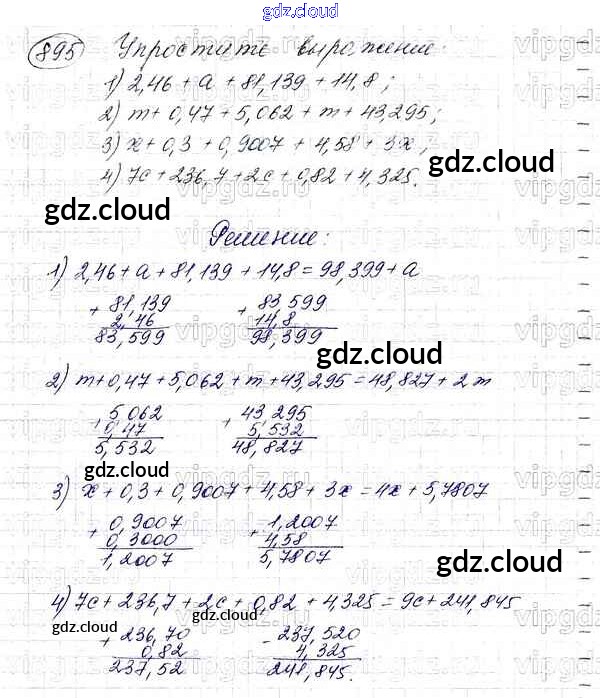 gdz.cloud
895 Упростите выражение:
1) 2,46 + a + 81,139 + 14,8;
2) m + 0,47 + 5,062 + m + 43,295;
3) x + 0,3 + 0,9007 + 4,58 + 3x;
4) 7c + 236,7 + 2c + 0,82 + 4,325.
gdz.cloud
gdz.cloud
Решение:
1) 2,46 + a + 81,139 + 14,8 = 98,399 + a
+ 81,139 + 83,599
2,46 14,8
83,599 98,399
gdz.cloud
2) m + 0,47 + 5,062 + m + 43,295 = 48,827 + 2m
5,062 43,295
+ 0,47 + 5,532
5,532 48,827
gdz.cloud
3) x + 0,3 + 0,9007 + 4,58 + 3x = 4x + 5,7807
+ 0,9007 + 1,2007
0,3000 4,58
1,2007 5,7807
gdz.cloud
4) 7c + 236,7 + 2c + 0,82 + 4,325 = 9c + 241,845
gdz.cloud gdz.cloud
+ 236,70 - 237,520
0,82 4,325
237,52 241,845.